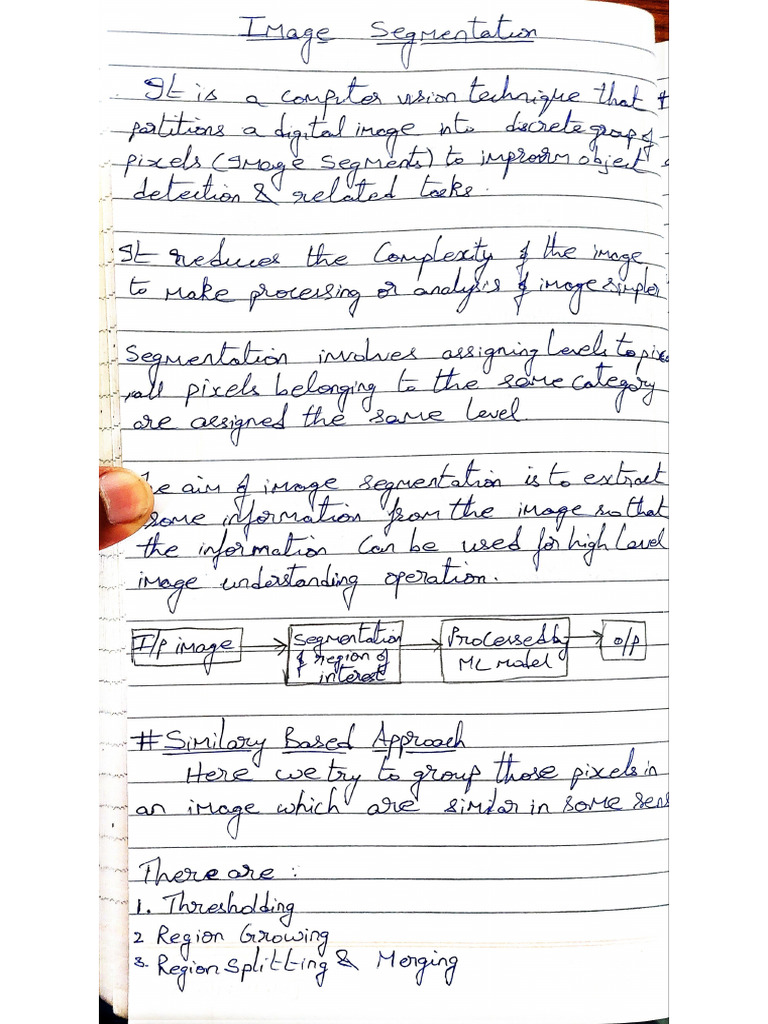 Image Segmentation
It is a computer vision technique that
partitions a digital image into discrete group of
pixels (Image Segments) to improvm object
detection & related tasks.
It reduces the Complexity of the image
to make processing or analysis of image simpler
Segmentation involves assigning levels to
all pixels belonging to the same category
are assigned the same level
aim of image segmentation is to extract
some information from the image so that
the information can be used for high level
image understanding operation.
I/p image
Segmentation
of region of
interest
Processed by
ML model
o/p
# Similary Based Approach
Here we try to group those pixels in
an image which are similar in some
There are :
1. Thresholding
2 Region Growing
3. Region Splitting & Merging